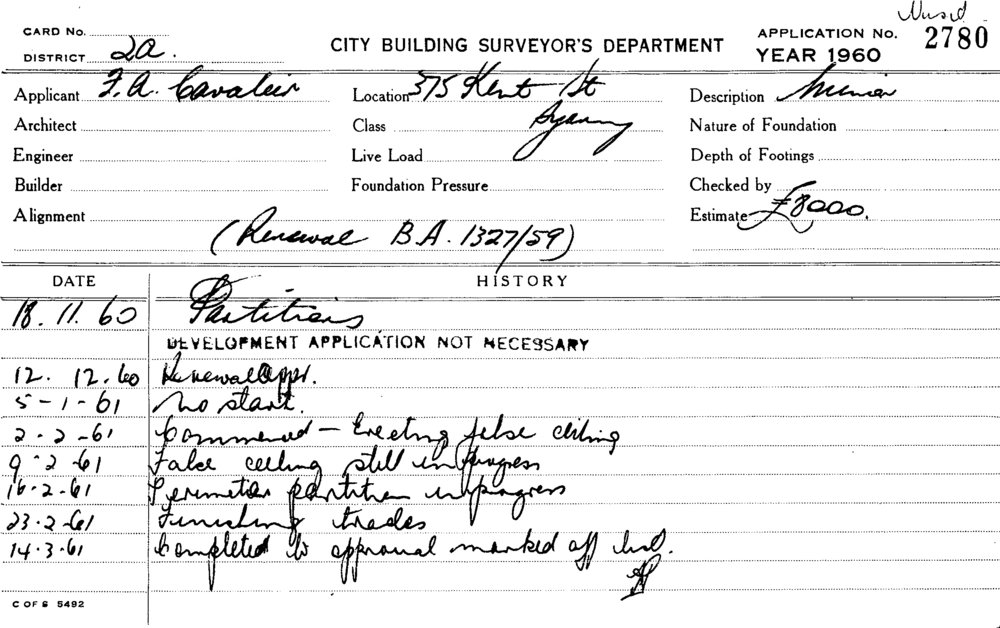 CARD No.
DISTRICT 2a.
CITY BUILDING SURVEYOR'S DEPARTMENT
APPLICATION No. 2780
YEAR 1960
Applicant F.A. Cavalier
Location 375 Kent St
Sydney
Description Minor
Architect
Class
Nature of Foundation
Engineer
Live Load
Depth of Footings
Builder
Foundation Pressure
Checked by
Alignment
Estimate £8000.
(Renewal B.A. 1327/59)
DATE HISTORY
18.11.60 Partitions
DEVELOPMENT APPLICATION NOT NECESSARY
12.12.60 Renewal Appr.
5-1-61 No start.
2-2-61 Commenced - Erecting false ceiling
9-2-61 False ceiling still in progress
16-2-61 Perimeter partition in progress
23-2-61 Finishing trades
14-3-61 Completed to approval marked off
C OF S 5492